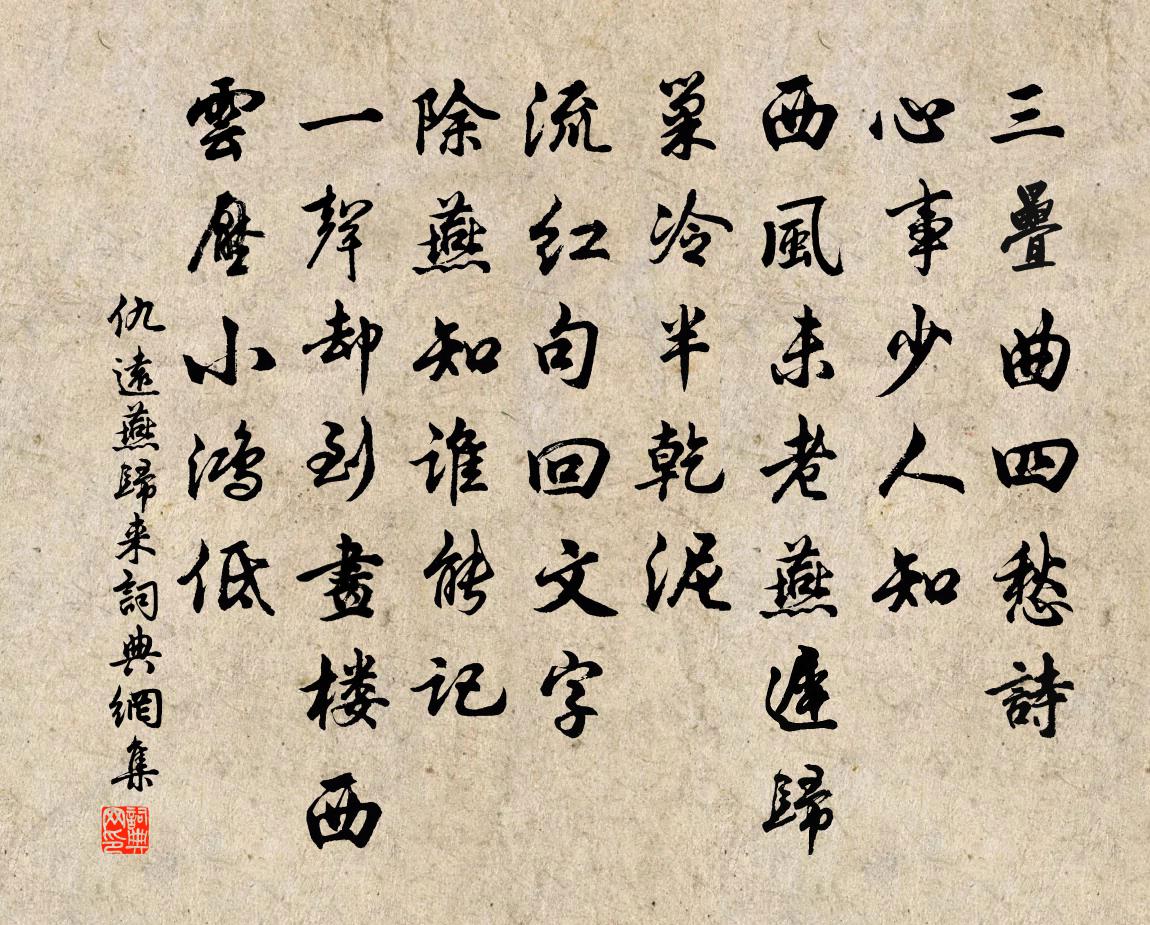 三疊曲四愁詩
心事少人知
西風未老燕遲歸
巢冷半乾泥
流红句回文字
除燕知谁能记
一聲却到畫楼西
雲壓小鴻低
仇遠燕歸来詞典網集
詞典网印